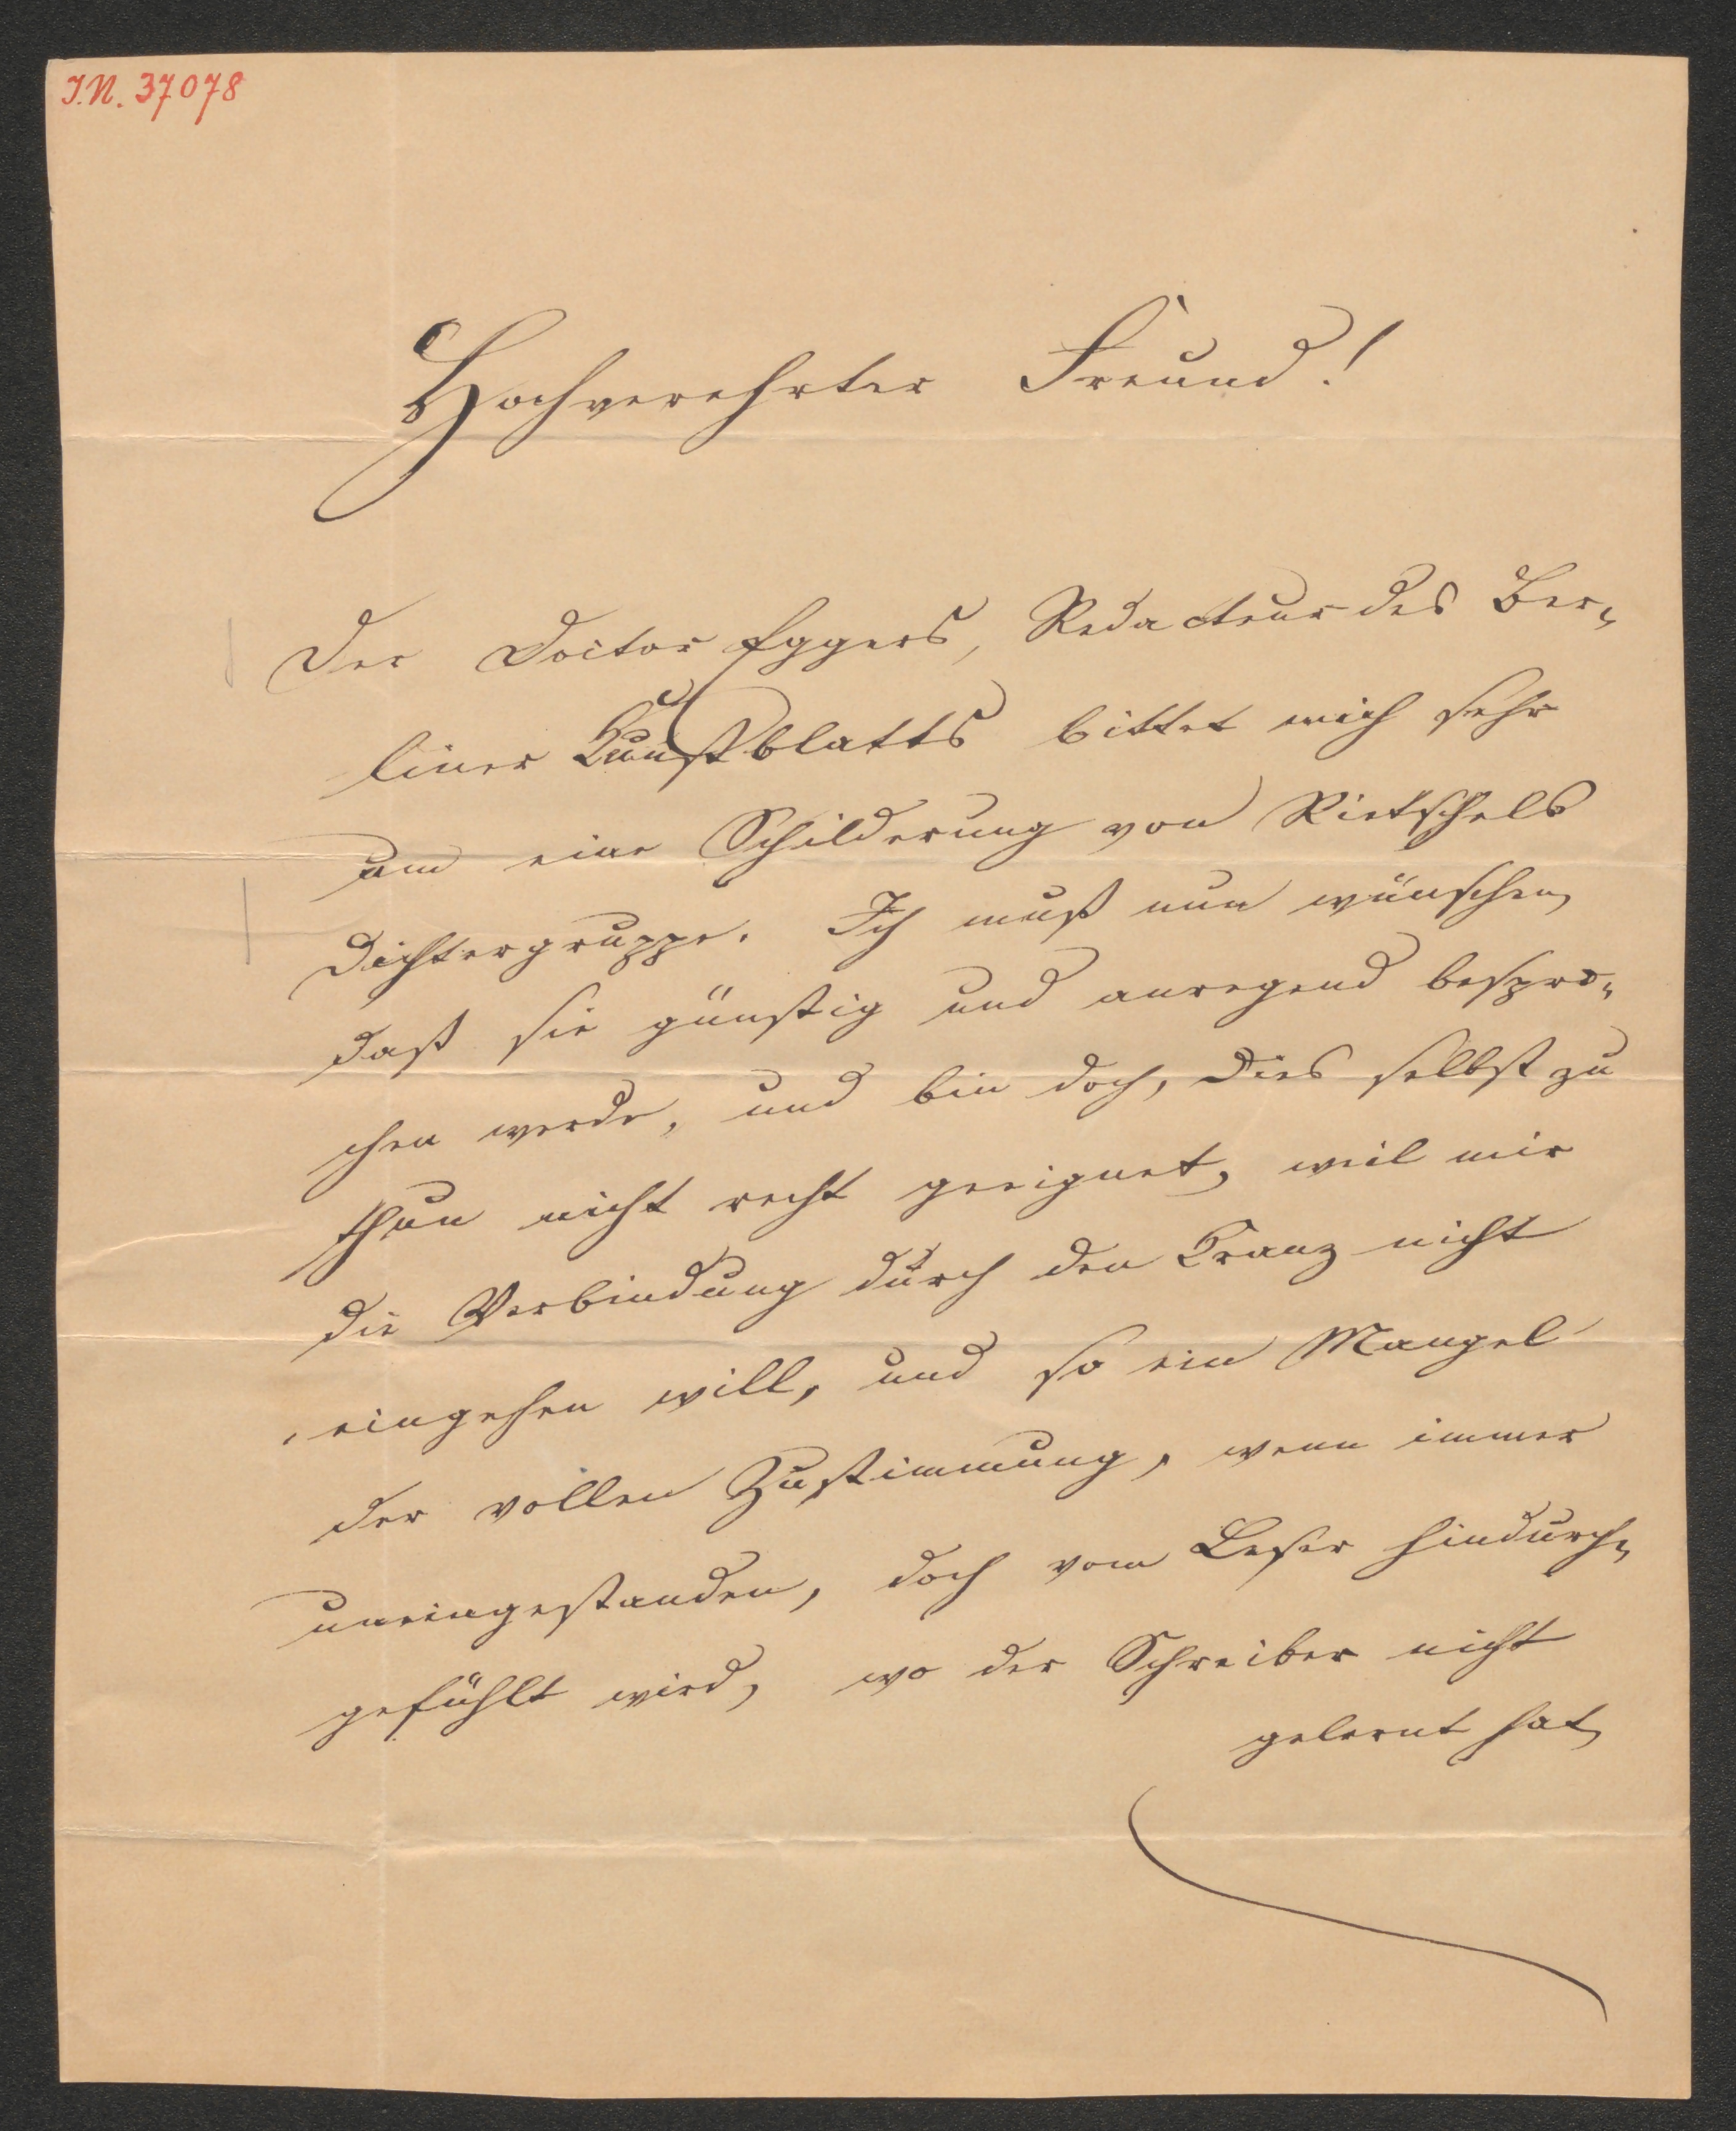 I.N. 37078
Hochverehrter Freund!
Der Doctor Eggers, Redacteur des Ber-
liner Kunstblatts bittet mich sehr
um eine Schilderung von Rietschels
Dichtergruppe. Ich muß nun wünschen,
daß sie günstig und anregend bespro-
chen werde, und bin doch, dies selbst zu
thun nicht recht geeignet, weil mir
die Verbindung durch den Kranz nicht
eingehen will, und so ein Mangel
der vollen Zustimmung, wenn immer
uneingestanden, doch vom Leser hindurch-
gefühlt wird, wo der Schreiber nicht
gelernt hat,